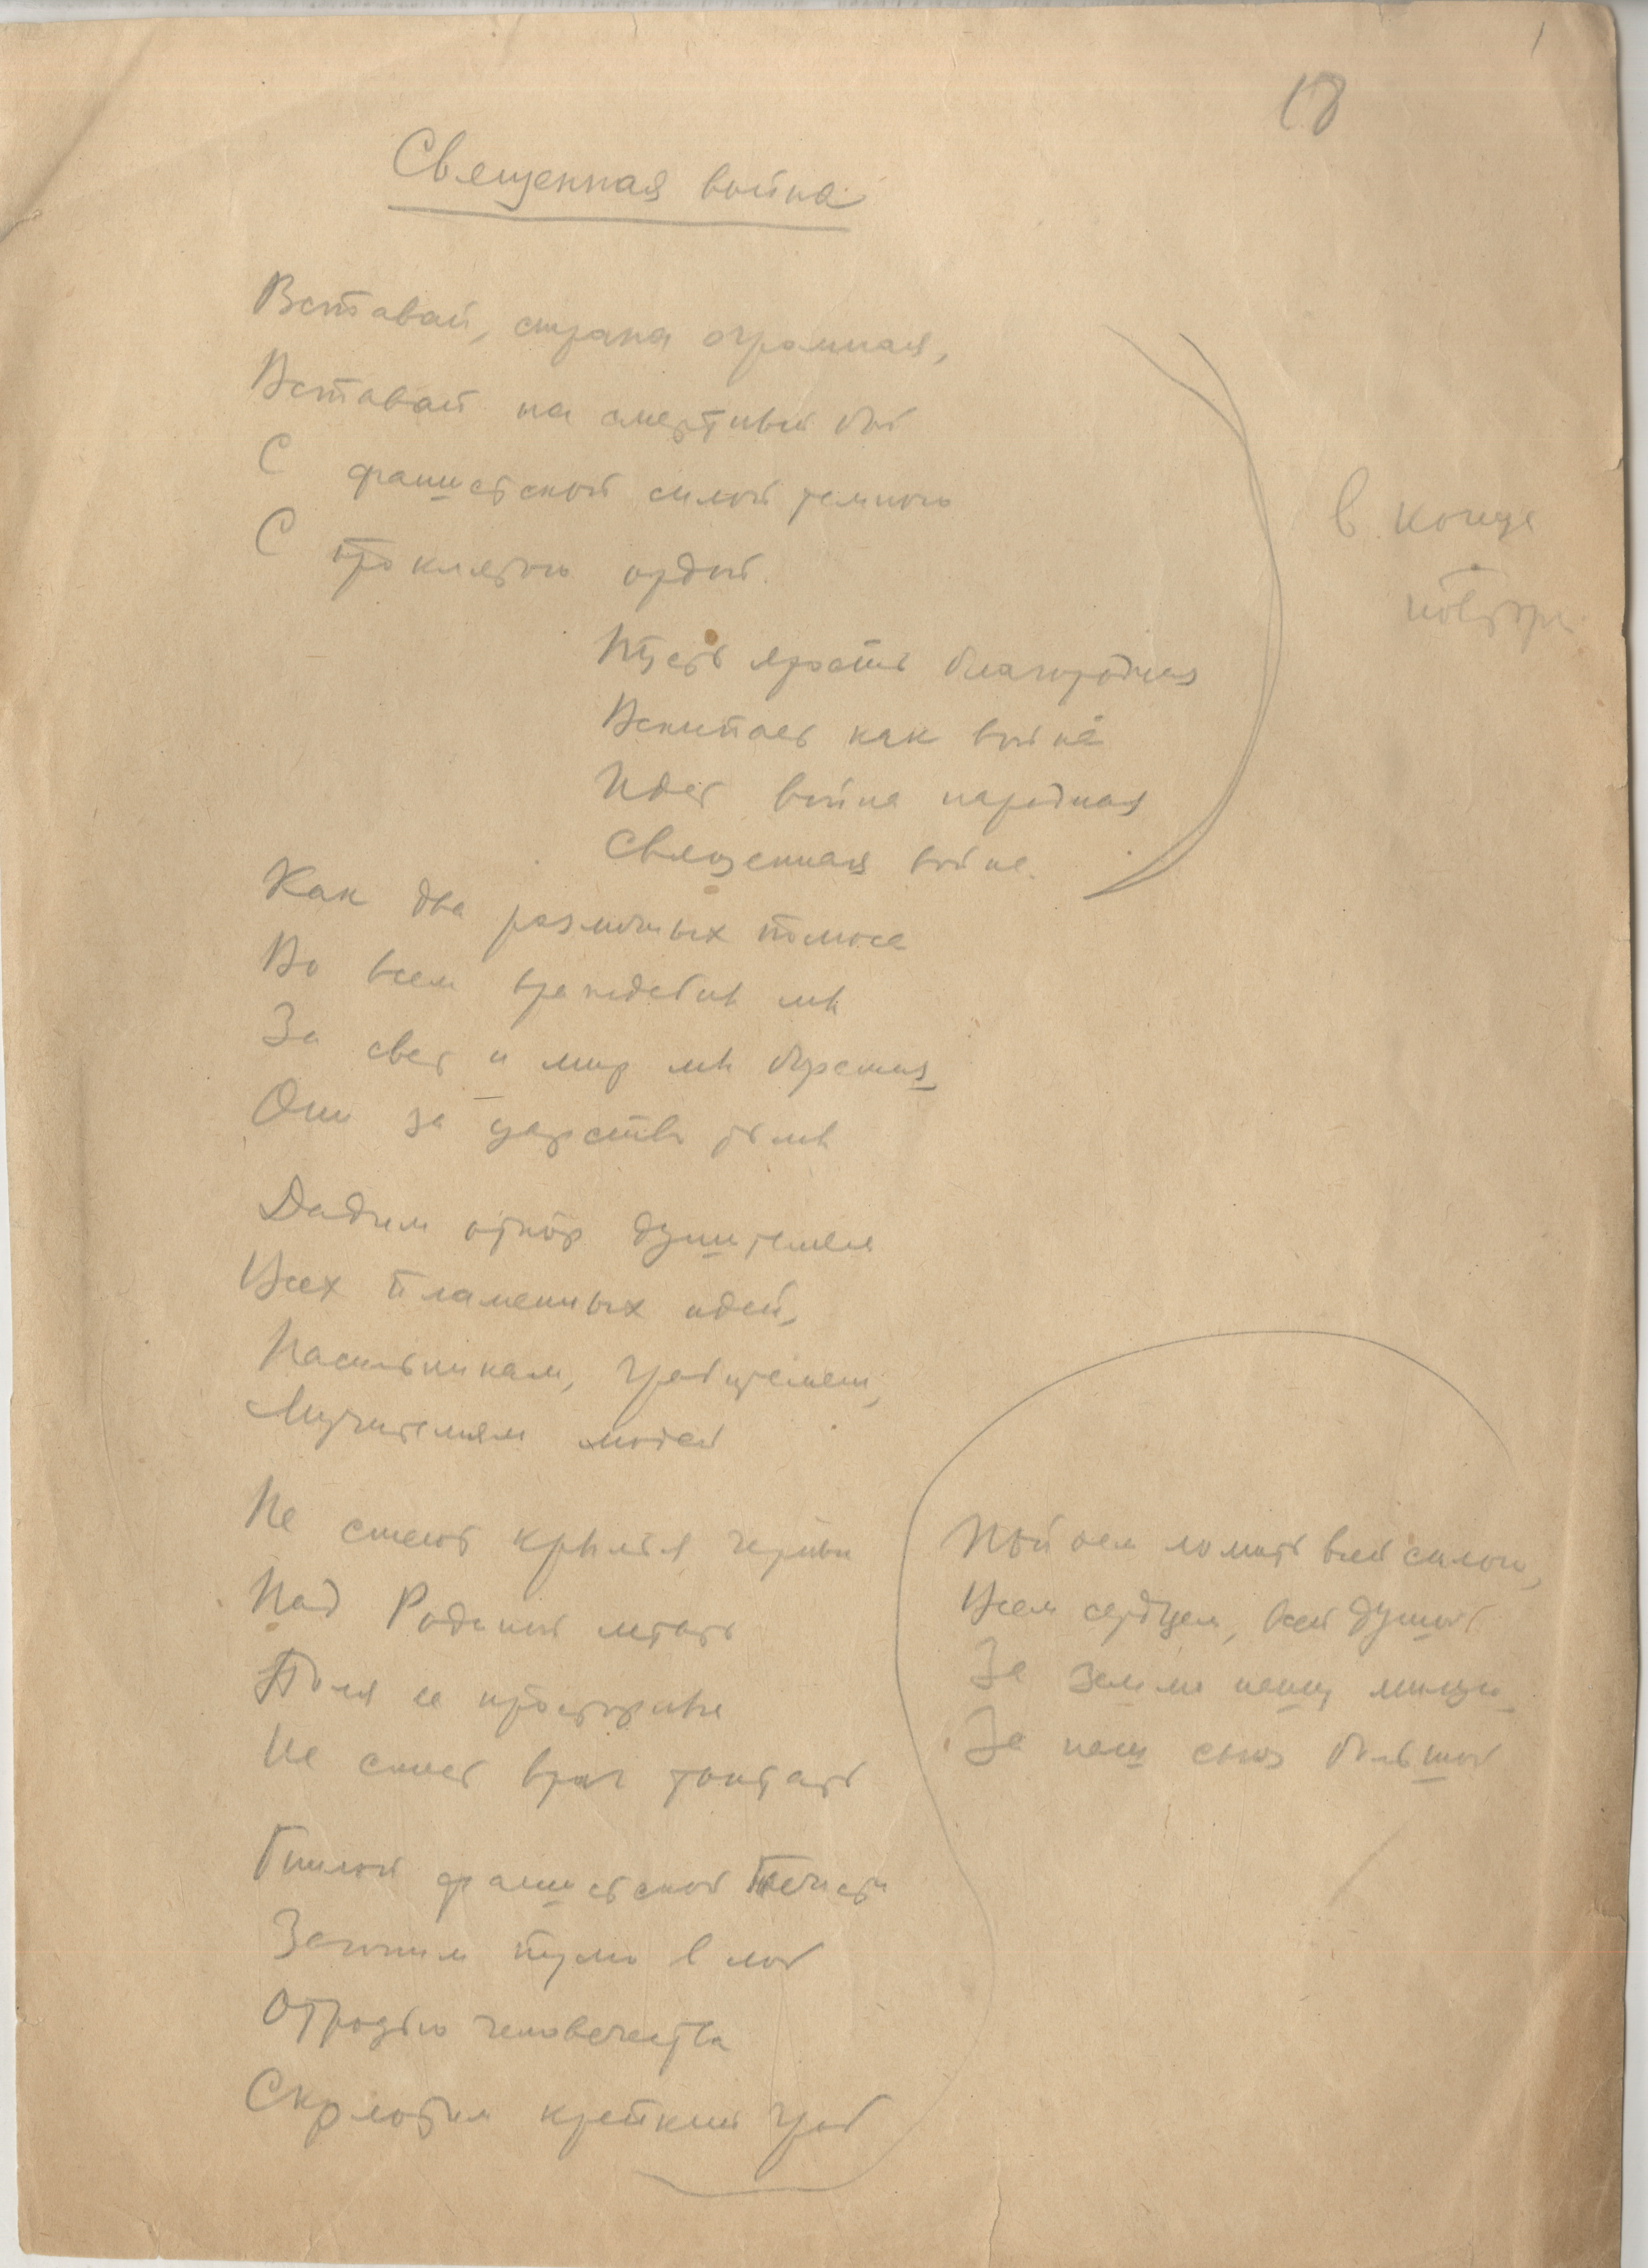 1
18
Священная война
Вставай, страна огромная,
Вставай на смертный бой
С фашистской силой темною
С проклятою ордой.
в конце
повтори
Пусть ярость благородная
Вскипает как волна
Идет война народная
Священная война.
Как два различных полюса
Во всем враждебны мы
За свет и мир мы боремся
Они за царство тьмы
Дадим отпор душителям
Всех пламенных идей,
Насильникам, грабителям,
Мучителям людей
Не смеют крылья черные
Над Родиной летать
Поля ее просторные
Не смеет враг топтать
Гнилой фашистской нечисти
Загоним пулю в лоб
Отродью человечества
Сколотим крепкий гроб
Пойдем ломить всей силою,
Всем сердцем, всей душой
За землю нашу милую
За наш союз большой